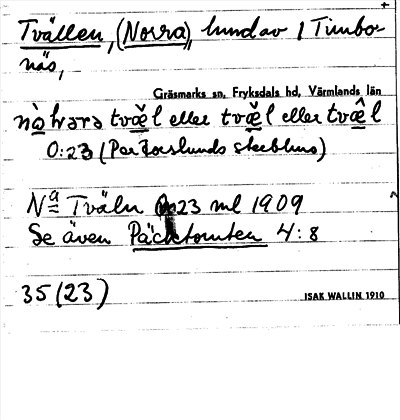 Tvällen, (Norra), hund av 1 Timbo-
näs,
Gräsmarks sn, Fryksdals hd, Värmlands län
nòhrara tvæ̌l eller tvæ̌l eller tvæ̂l
0:23 (Per
Na Tväln 23 ml 1909
Se även Päcktomten 4:8
35 (23)
ISAK WALLIN 1910